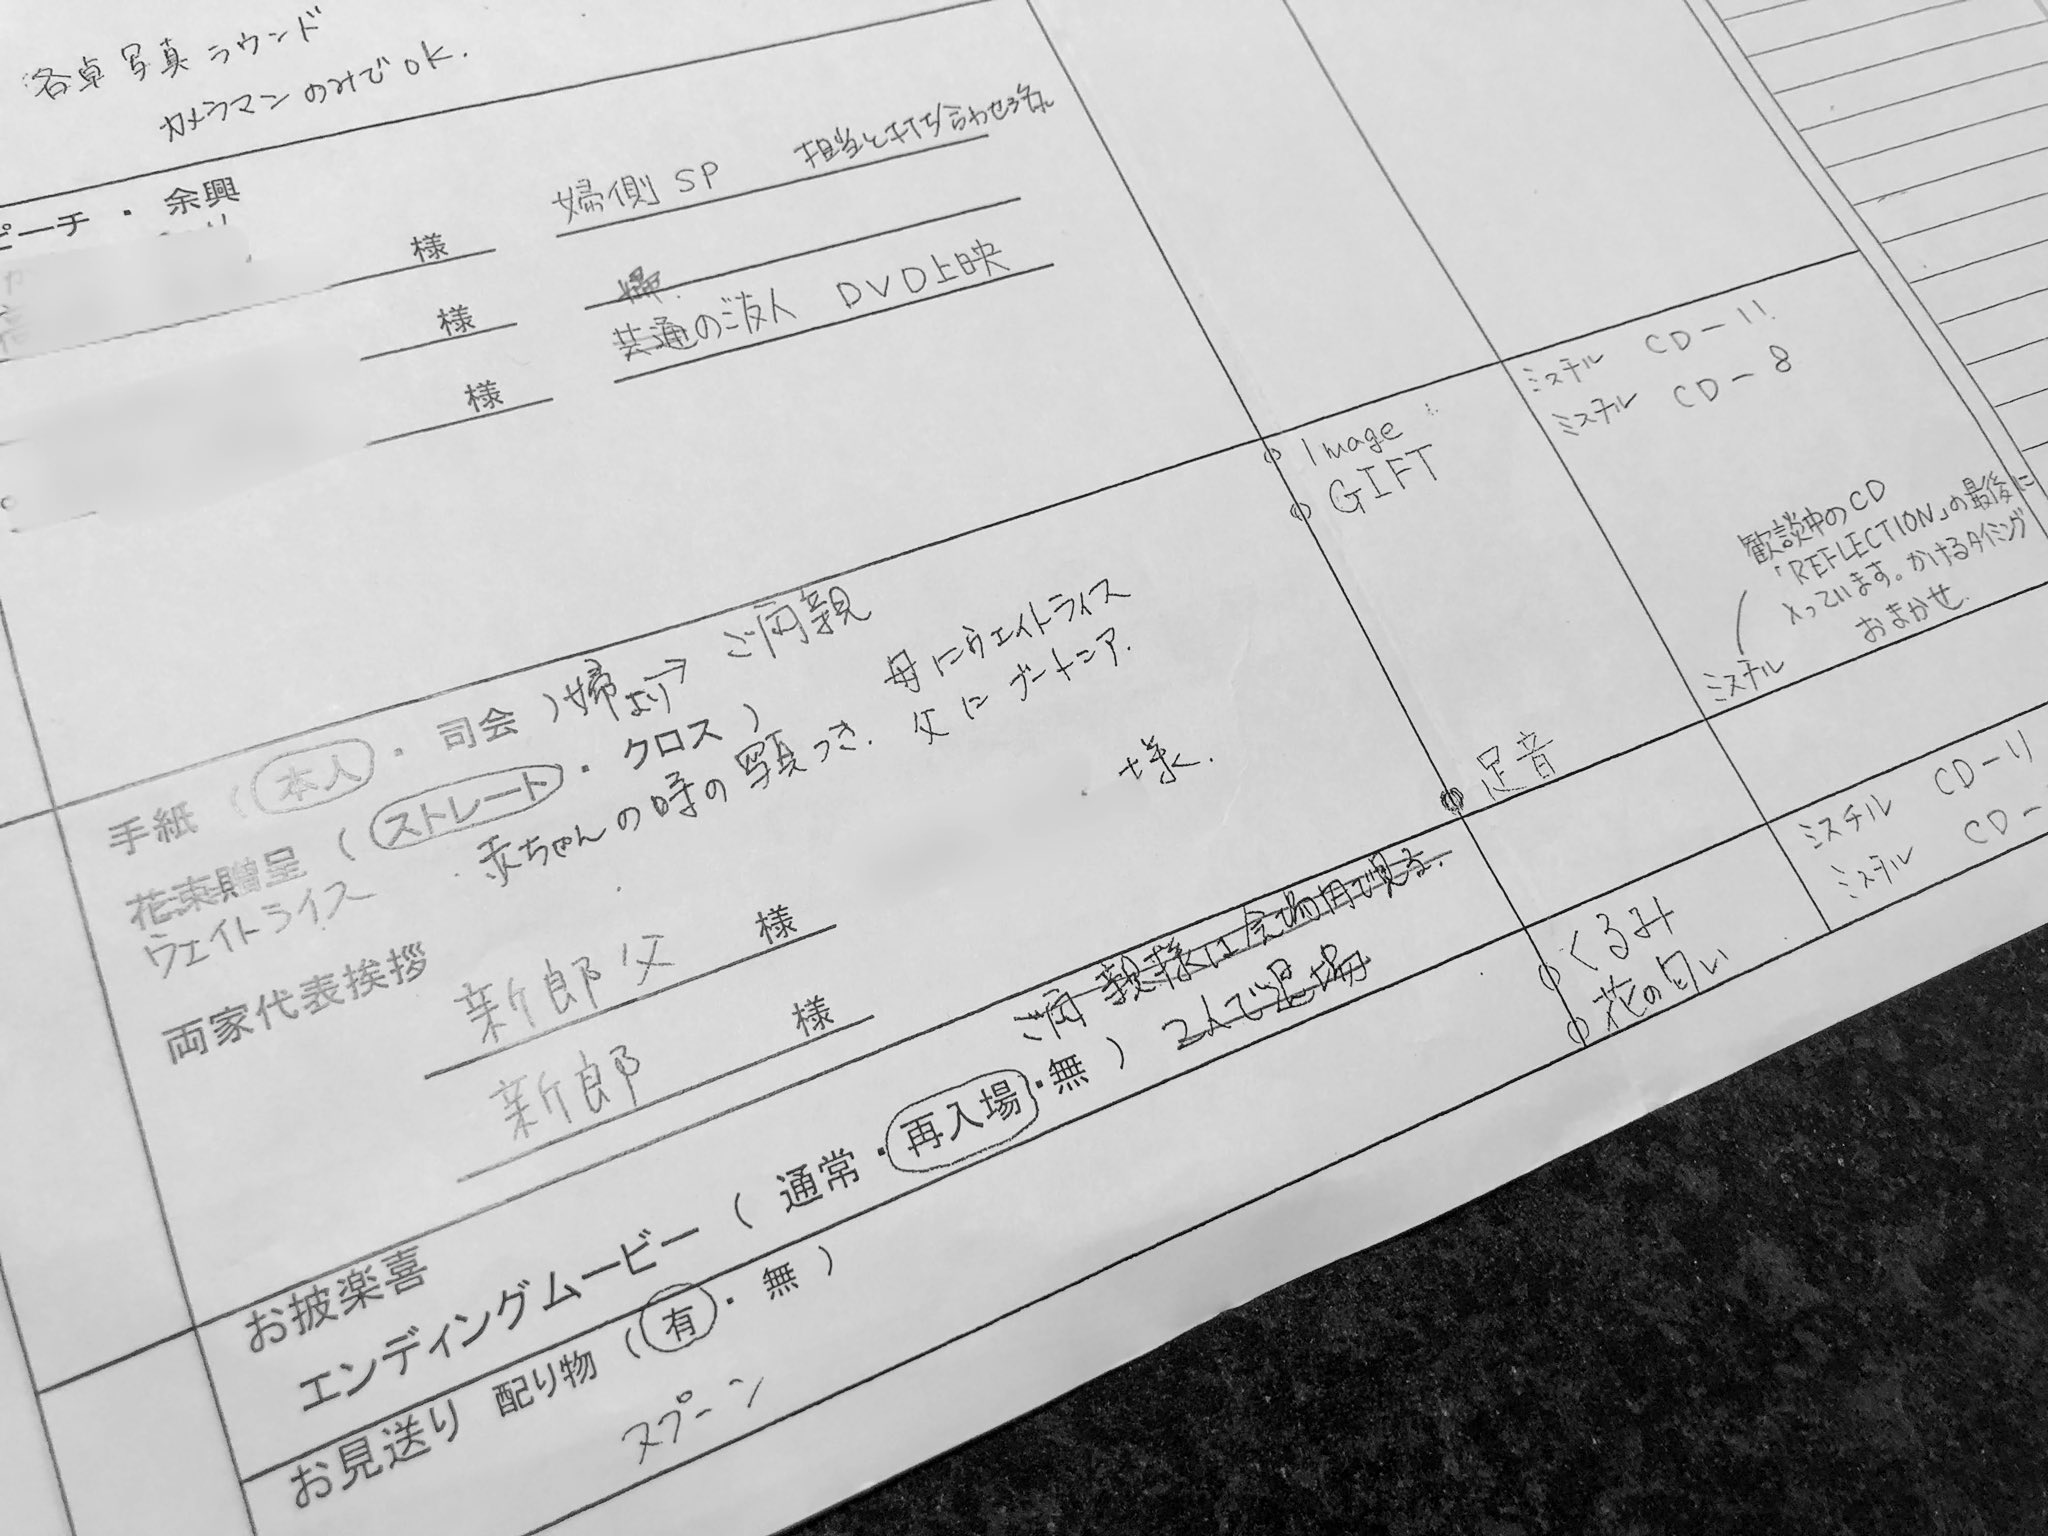 各卓写真ラウンド
カメラマンのみでOK.
ピーチ・余興
様 婦側SP 担当と打ち合わせ
様 婦.
様 共通のご友人 DVD上映
手紙(本人・司会)婦より→ご両親
花束贈呈(ストレート・クロス)
ウェイトライス 赤ちゃんの時の写真つき. 母にウェイトライス
父にブートニア.
様.
両家代表挨拶
新郎父 様
新郎 様
お披楽喜
ご両親様は会場内で見る.
エンディングムービー(通常・再入場・無) 2人で退場
お見送り 配り物(有・無)
スプーン
Image
GIFT
足音
くるみ
花の匂い
ミスチル CD-11
ミスチル CD-8
歓談中のCD
「REFLECTION」の最後に
入っています。かけるタイミング
おまかせ.
ミスチル
ミスチル CD-11
ミスチル CD-